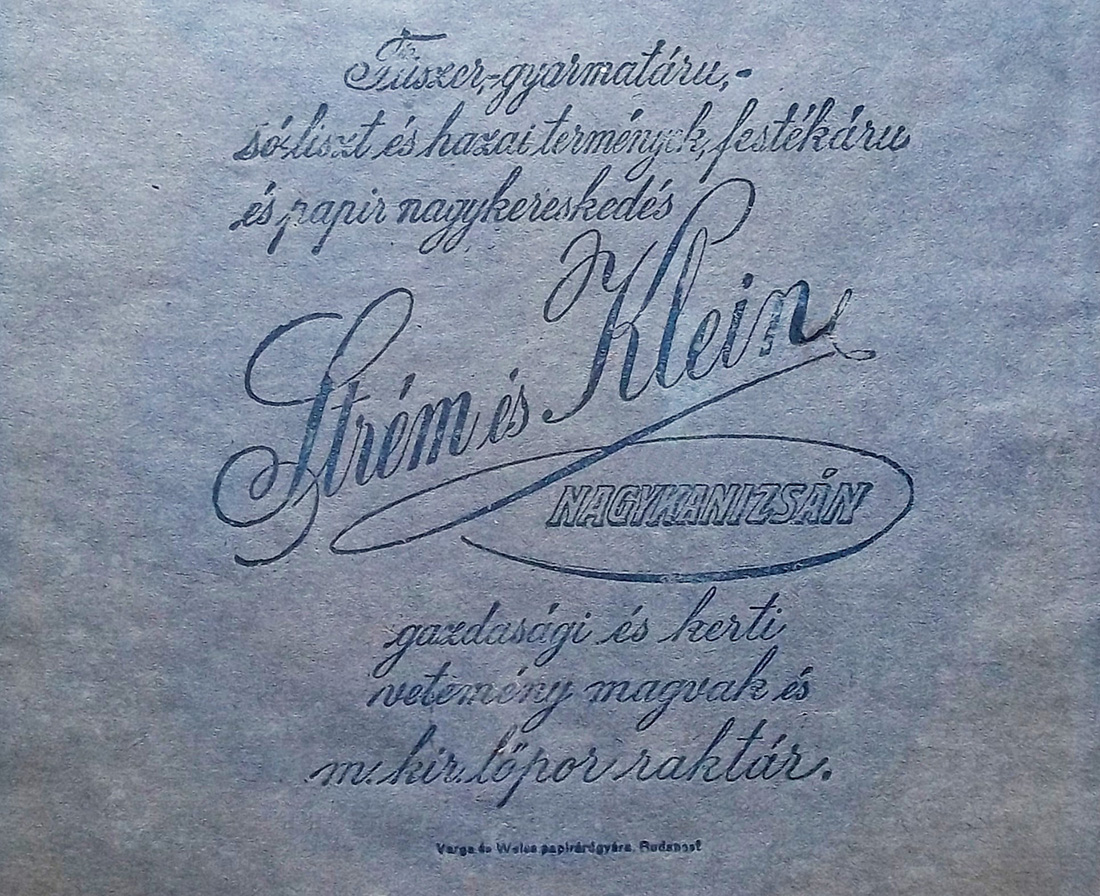 Fűszer,-gyarmatáru,-
só-liszt és hazai termények, festékáru
és papir nagykereskedés
Strém és Klein
NAGYKANIZSÁN
gazdasági és kerti
vetemény magvak és
m. kir. lőpor raktár.
Varga és Weisz papirárúgyára, Budapest